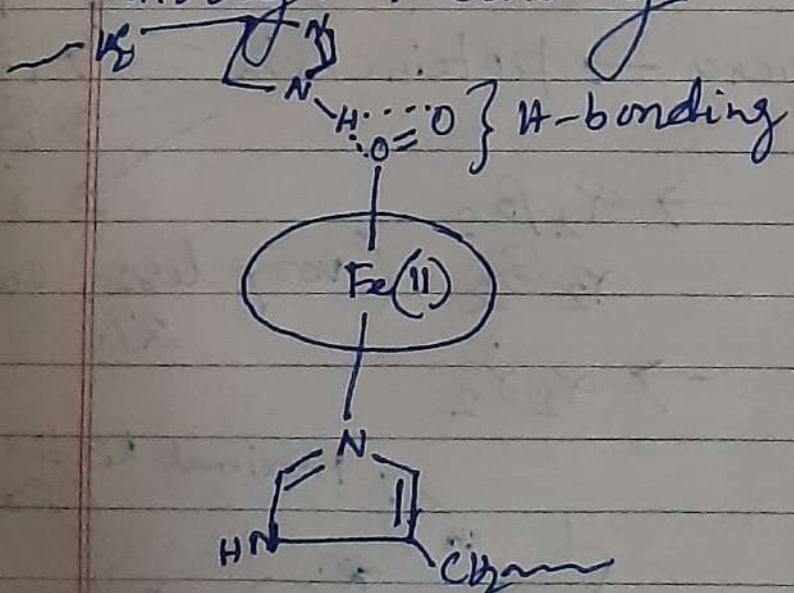 N
N
H O } H-bonding
O
Fe(II)
N
HN
CH₂